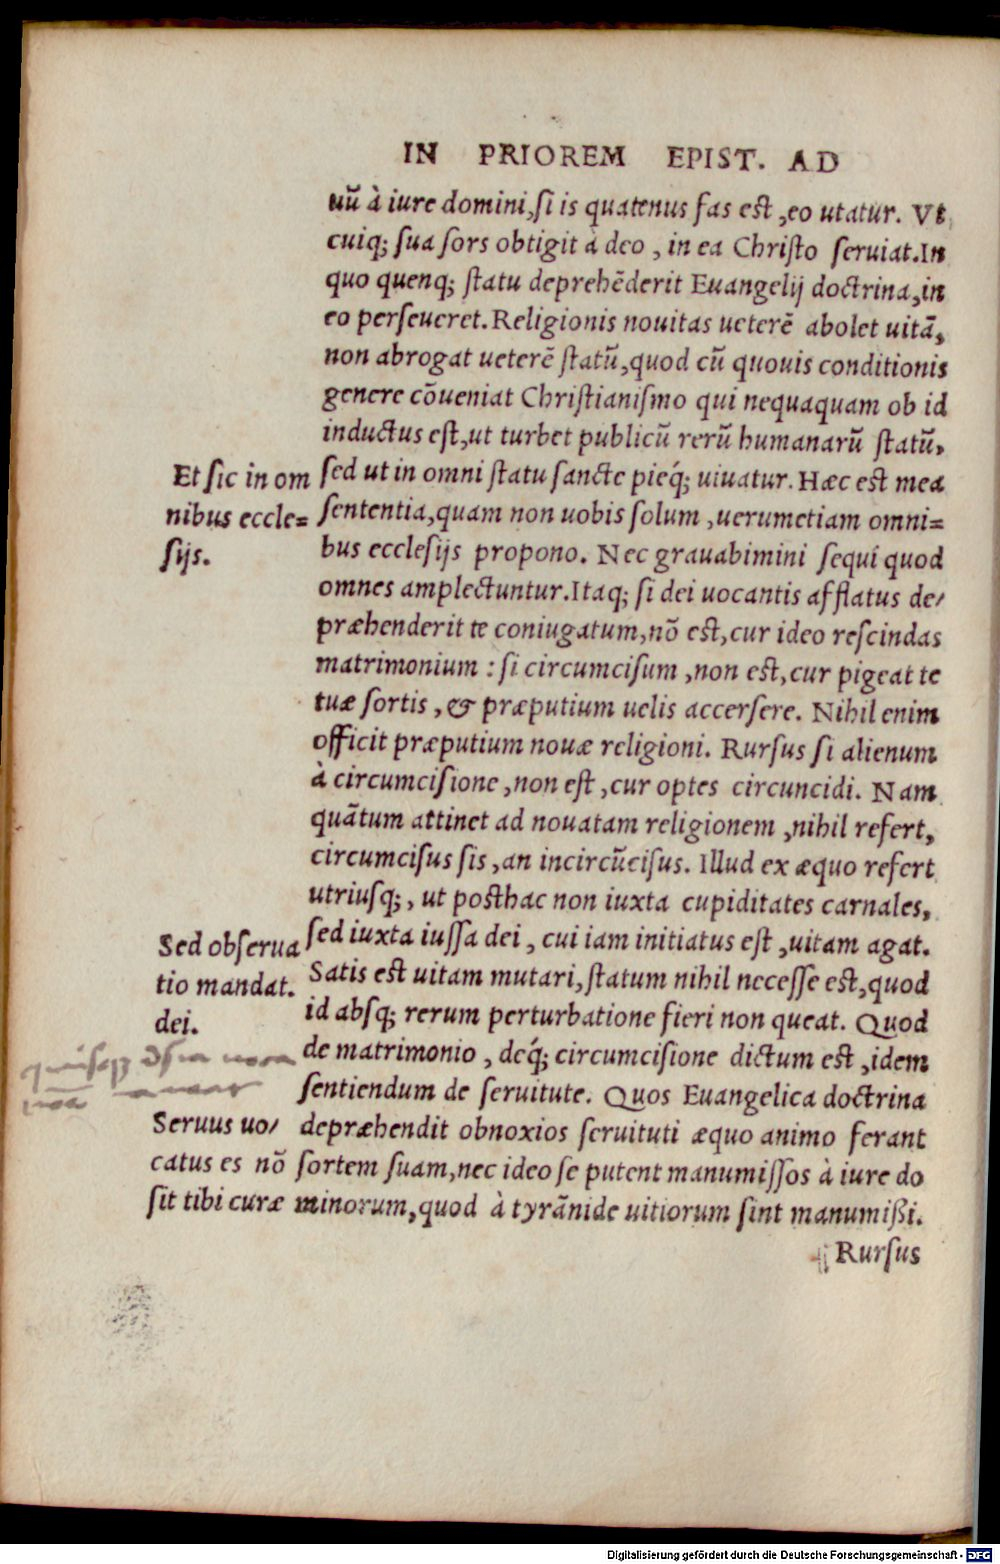 IN PRIOREM EPIST. AD
uũ à iure domini, ſi is quatenus fas est, eo utatur. Vt
cuiq; ſua ſors obtigit à deo, in ea Chriſto ſeruiat. In
quo quenq; ſtatu deprehẽderit Euangelij doctrina, in
eo perſeueret. Religionis nouitas ueterẽ abolet uitã,
non abrogat ueterẽ ſtatũ, quod cũ quouis conditionis
genere cõueniat Chriſtianiſmo qui nequaquam ob id
inductus eſt, ut turbet publicũ rerũ humanarũ ſtatũ,
sed ut in omni ſtatu ſancte pieq́; uiuatur. Hæc est mea
ſententia, quam non uobis ſolum, uerumetiam omni=
bus eccleſijs propono. Nec grauabimini ſequi quod
omnes amplectuntur. Itaq; ſi dei uocantis afflatus de/
præhenderit te coniugatum, nõ est, cur ideo reſcindas
matrimonium: ſi circumciſum, non est, cur pigeat te
tuæ ſortis, & præputium uelis accerſere. Nihil enim
officit præputium nouæ religioni. Rurſus ſi alienum
à circumciſione, non eſt, cur optes circuncidi. Nam
quãtum attinet ad nouatam religionem, nihil refert,
circumciſus ſis, an incircũciſus. Illud ex æquo refert
utriuſq;, ut posthac non iuxta cupiditates carnales,
ſed iuxta iuſſa dei, cui iam initiatus eſt, uitam agat.
Satis est uitam mutari, ſtatum nihil neceſſe est, quod
id abſq; rerum perturbatione fieri non queat. Quod
de matrimonio, deq́; circumciſione dictum est, idem
ſentiendum de ſeruitute. Quos Euangelica doctrina
depræhendit obnoxios ſeruituti æquo animo ferant
ſortem ſuam, nec ideo ſe putent manumiſſos à iure do
minorum, quod à tyrãnide uitiorum ſint manumißi.
Rurſus
Et ſic in om
nibus eccle=
ſijs.
Sed obſerua
tio mandat.
dei.
Seruus uo/
catus es nõ
sit tibi curæ
Digitalisierung gefördert durch die Deutsche Forschungsgemeinschaft - DFG